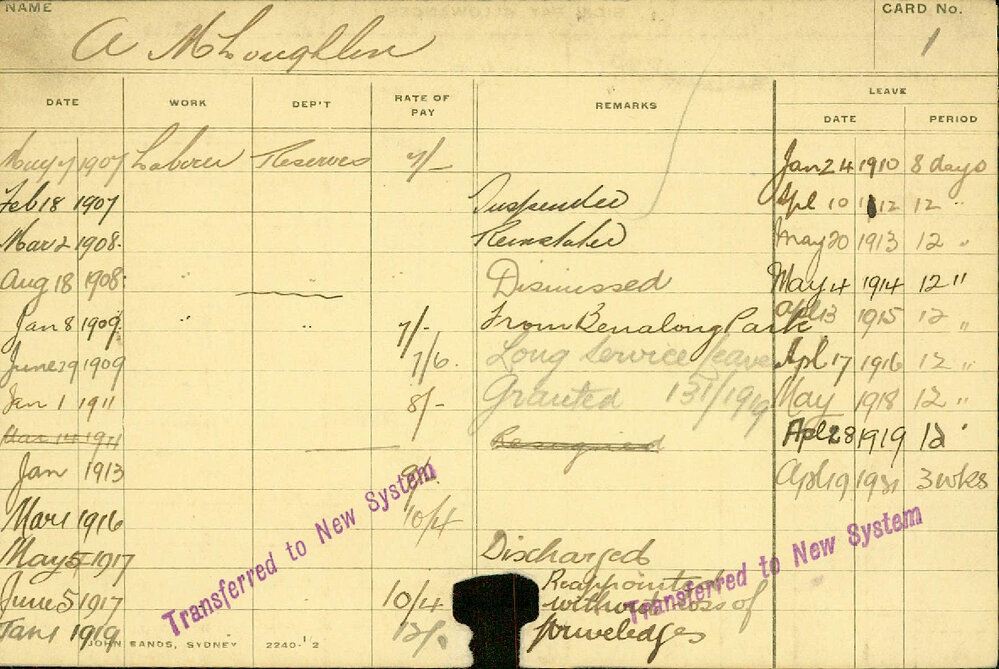 NAME
CARD No.
A McLoughlin
1
DATE WORK DEP'T RATE OF PAY REMARKS LEAVE
DATE PERIOD
May 7 1907 Laborer Reserves 7/- Jan 24 1910 8 days
Feb 18 1907 Suspended Apl 10 1912 12 "
Mar 2 1908 Reinstated May 20 1913 12 "
Aug 18 1908 " Dismissed May 4 1914 12 "
Jan 8 1909 " " 7/- From Benalong Park Apl 13 1915 12 "
June 29 1909 7/6 Long service leave Apl 17 1916 12 "
Jan 1 1911 8/- Granted 131/1919 May 1918 12 "
Mar 14 1911 Resigned Apl 28 1919 12 "
Jan 1913 9/- Apl 19 1921 3 wks
Mar 1 1916 10/4
May 5 1917 Discharged
June 5 1917 10/4 Reappointed without loss of
Jan 1 1919 12/- priveledges
Transferred to New System
Transferred to New System
JOHN SANDS, SYDNEY 2240-12